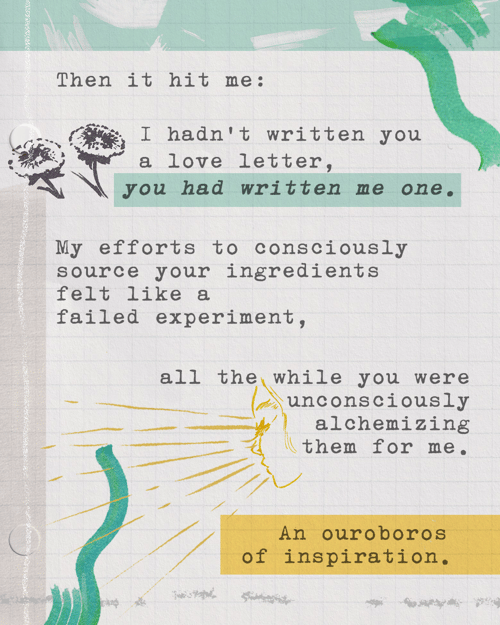 Then it hit me:
I hadn't written you
a love letter,
you had written me one.
My efforts to consciously
source your ingredients
felt like a
failed experiment,
all the while you were
unconsciously
alchemizing
them for me.
An ouroboros
of inspiration.